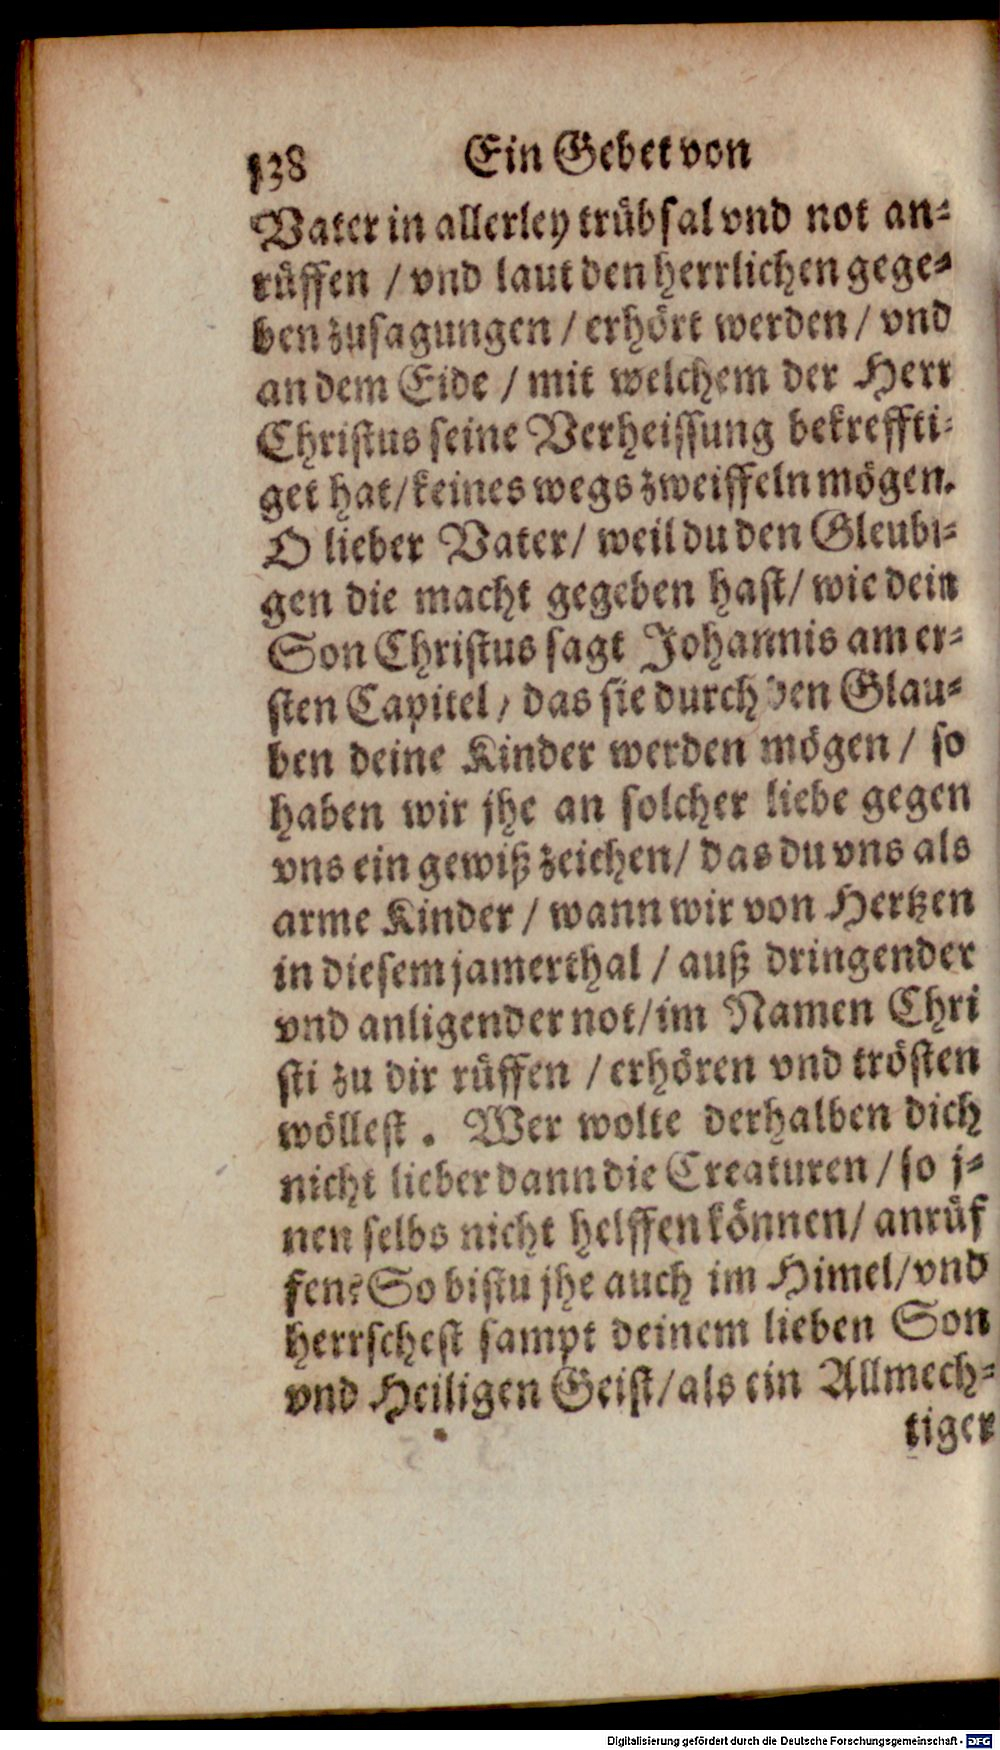 138 Ein Gebet von
Vater in allerley trübsal vnd not an-
rüffen / vnd laut den herrlichen gege-
ben zusagungen / erhört werden / vnd
an dem Eide / mit welchem der Herr
Christus seine Verheissung bekreffti-
get hat / keines wegs zweiffeln mögen.
O lieber Vater / weil du den Gleubi-
gen die macht gegeben hast / wie dein
Son Christus sagt Johannis am er-
sten Capitel / das sie durch den Glau-
ben deine Kinder werden mögen / so
haben wir jhe an solcher liebe gegen
vns ein gewiß zeichen / das du vns als
arme Kinder / wann wir von Hertzen
in diesem jamerthal / auß dringender
vnd anligender not / im Namen Chri
sti zu dir rüffen / erhören vnd trösten
wöllest. Wer wolte derhalben dich
nicht lieber dann die Creaturen / so j-
nen selbs nicht helffen können / anrüf
fen? So bistu jhe auch im Himel / vnd
herrschest sampt deinem lieben Son
vnd Heiligen Geist / als ein Allmech-
tiger
Digitalisierung gefördert durch die Deutsche Forschungsgemeinschaft - DFG